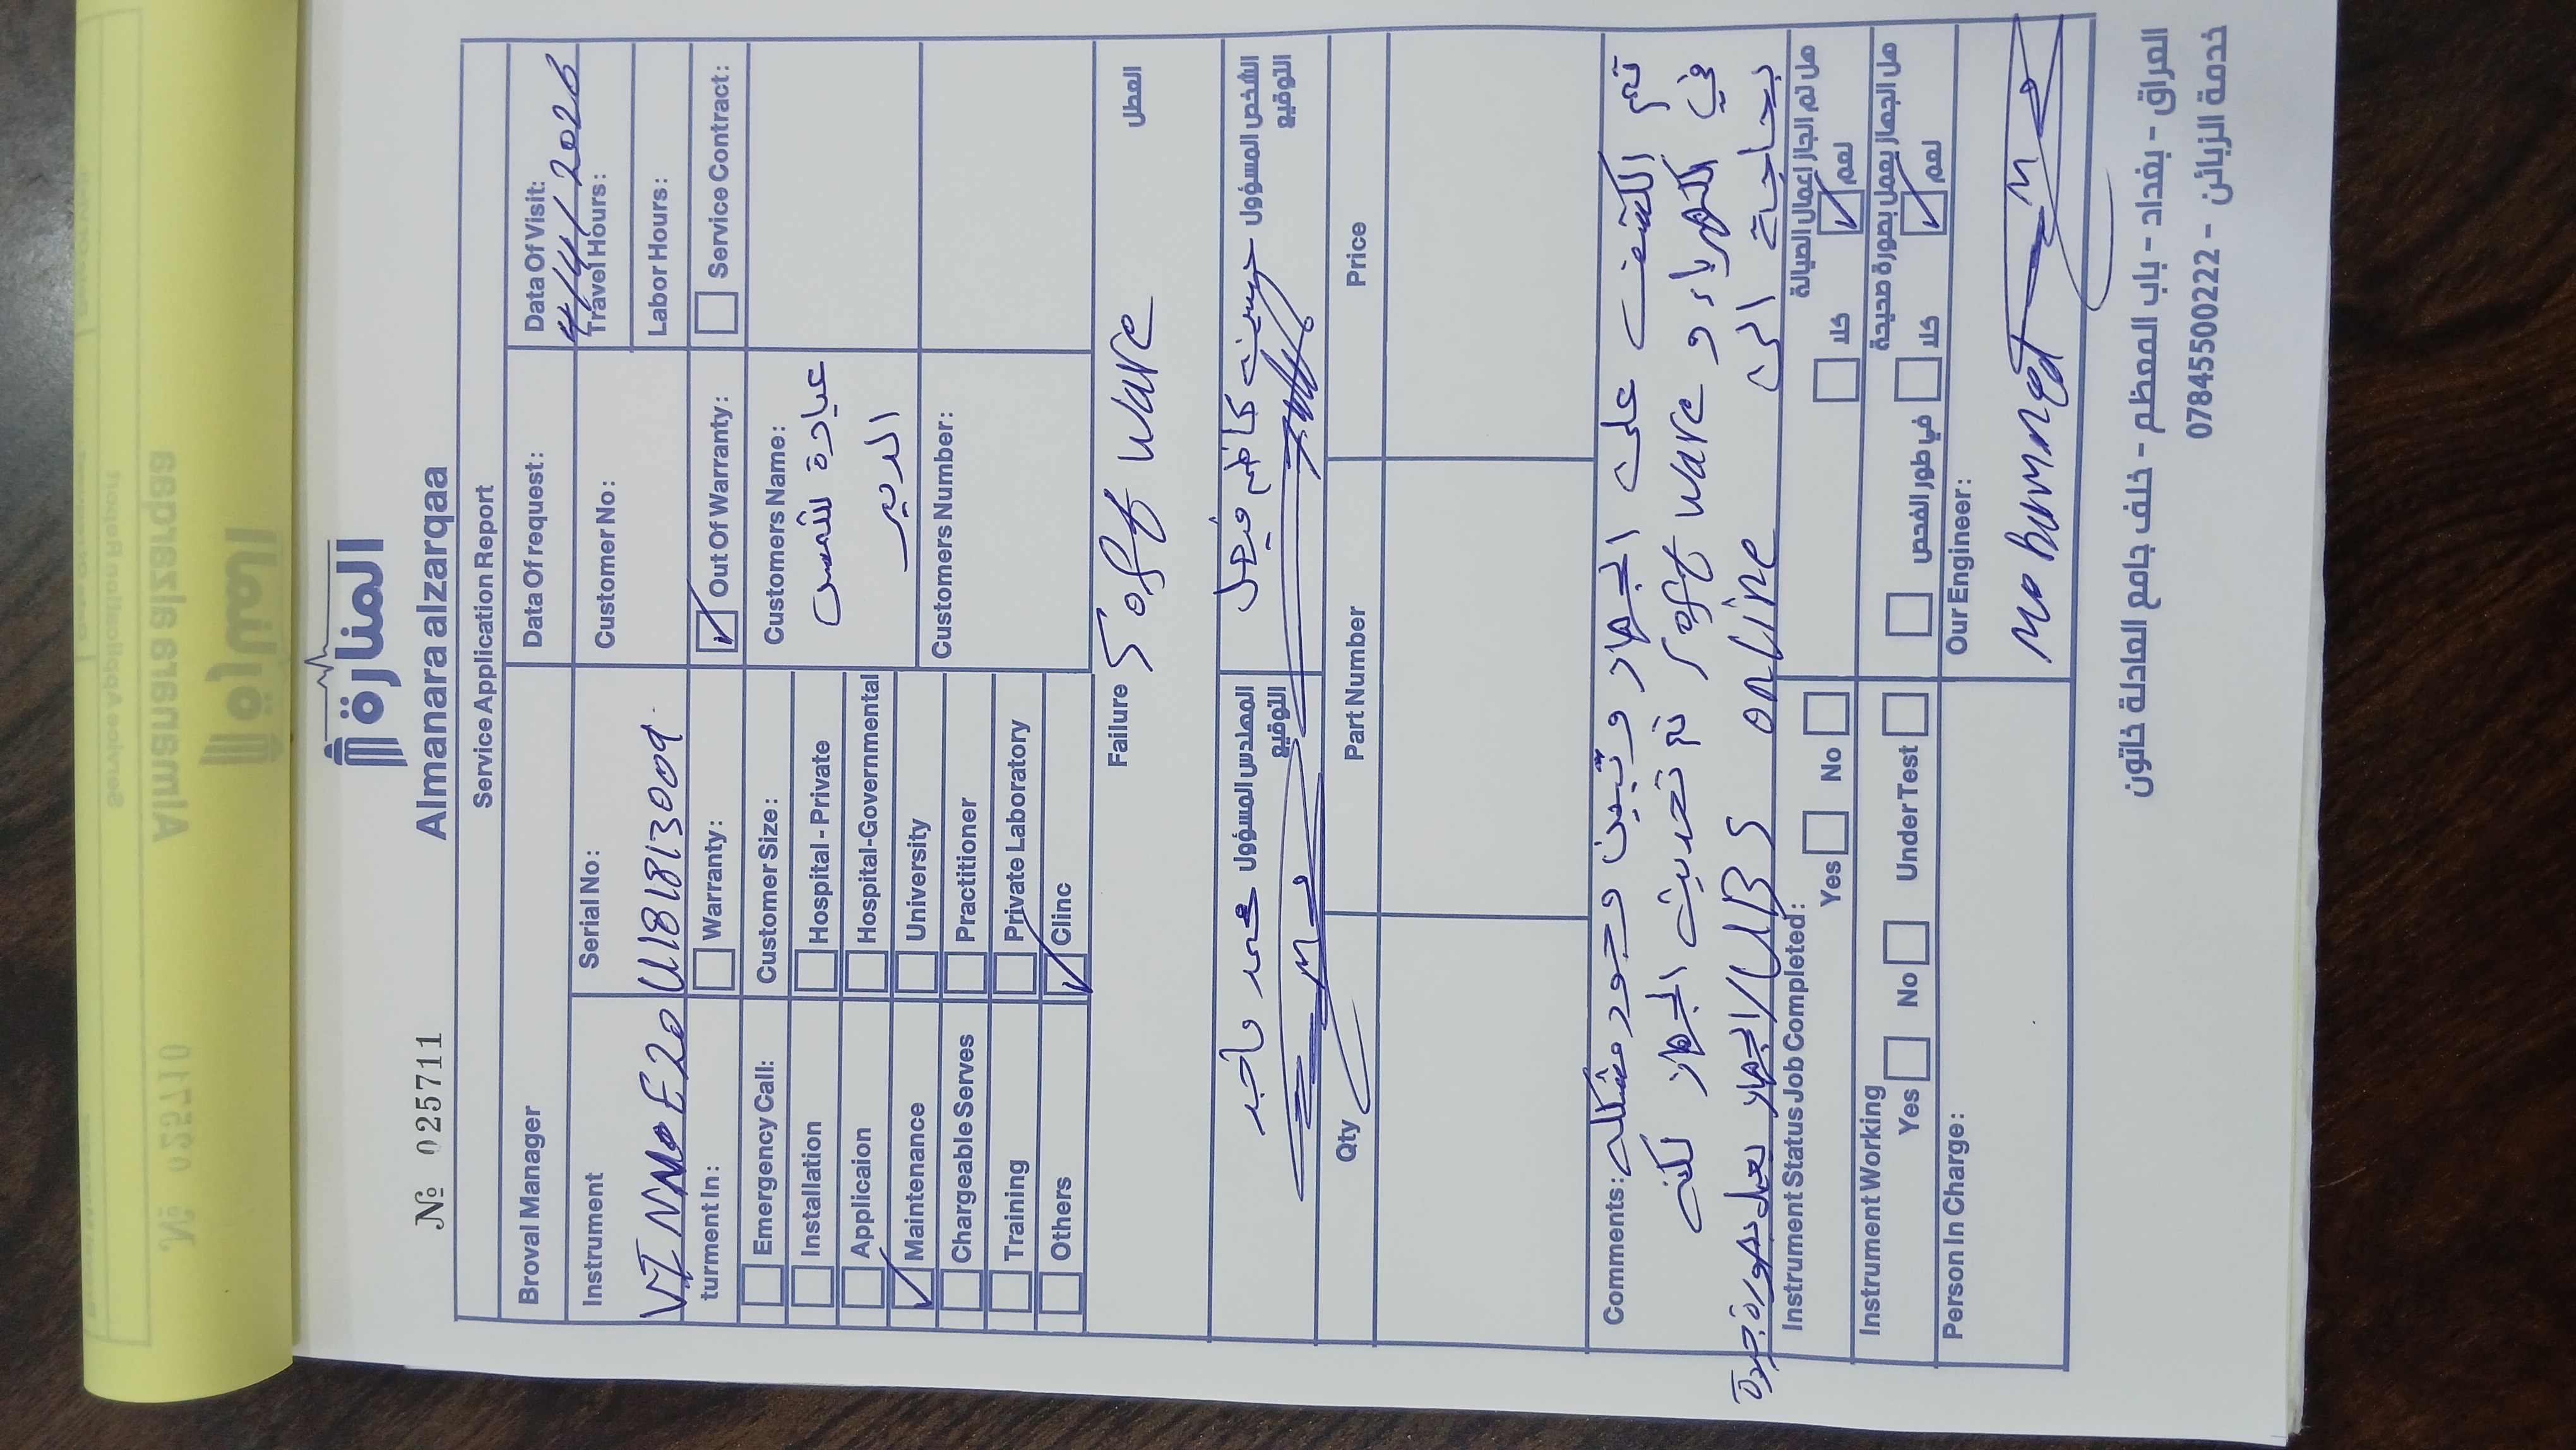 المنارة
Almanara alzarqaa
№ 025711
Service Application Report
Broval Manager
Data Of request:
Data Of Visit:
4/4/2026
Instrument
VINNO E20
Serial No:
U181813009
Customer No:
Travel Hours:
Labor Hours:
turment In:
Warranty:
Out Of Warranty:
Service Contract:
Emergency Call:
Installation
Applicaion
Maintenance
Chargeable Serves
Training
Others
Customer Size:
Hospital - Private
Hospital-Governmental
University
Practitioner
Private Laboratory
Clinc
Customers Name:
عيادة شمس
الدير
Customers Number:
Failure
العطل
Soft ware
المهندس المسؤول محمد ماجد
التوقيع
الشخص المسؤول حسين كاظم فيصل
التوقيع
Qty
Part Number
Price
Comments:
تم الكشف على الجهاز و تبين وجود مشكله
في الكهرباء و soft ware تم تحديث الجهاز لكنه
بحاجة الى online UBS / الجهاز يعمل بصورة جيدة
Instrument Status Job Completed:
Yes
No
هل تم انجاز اعمال الصيانة
نعم
كلا
Instrument Working
Yes
No
Under Test
هل الجهاز يعمل بصورة صحيحة
نعم
كلا
في طور الفحص
Person In Charge:
Our Engineer:
Mohammed
العراق - بغداد - باب المعظم - خلف جامع العادلة خاتون
خدمة الزبائن - 07845500222
№ 025710
Almanara alzarqaa
Service Application Report